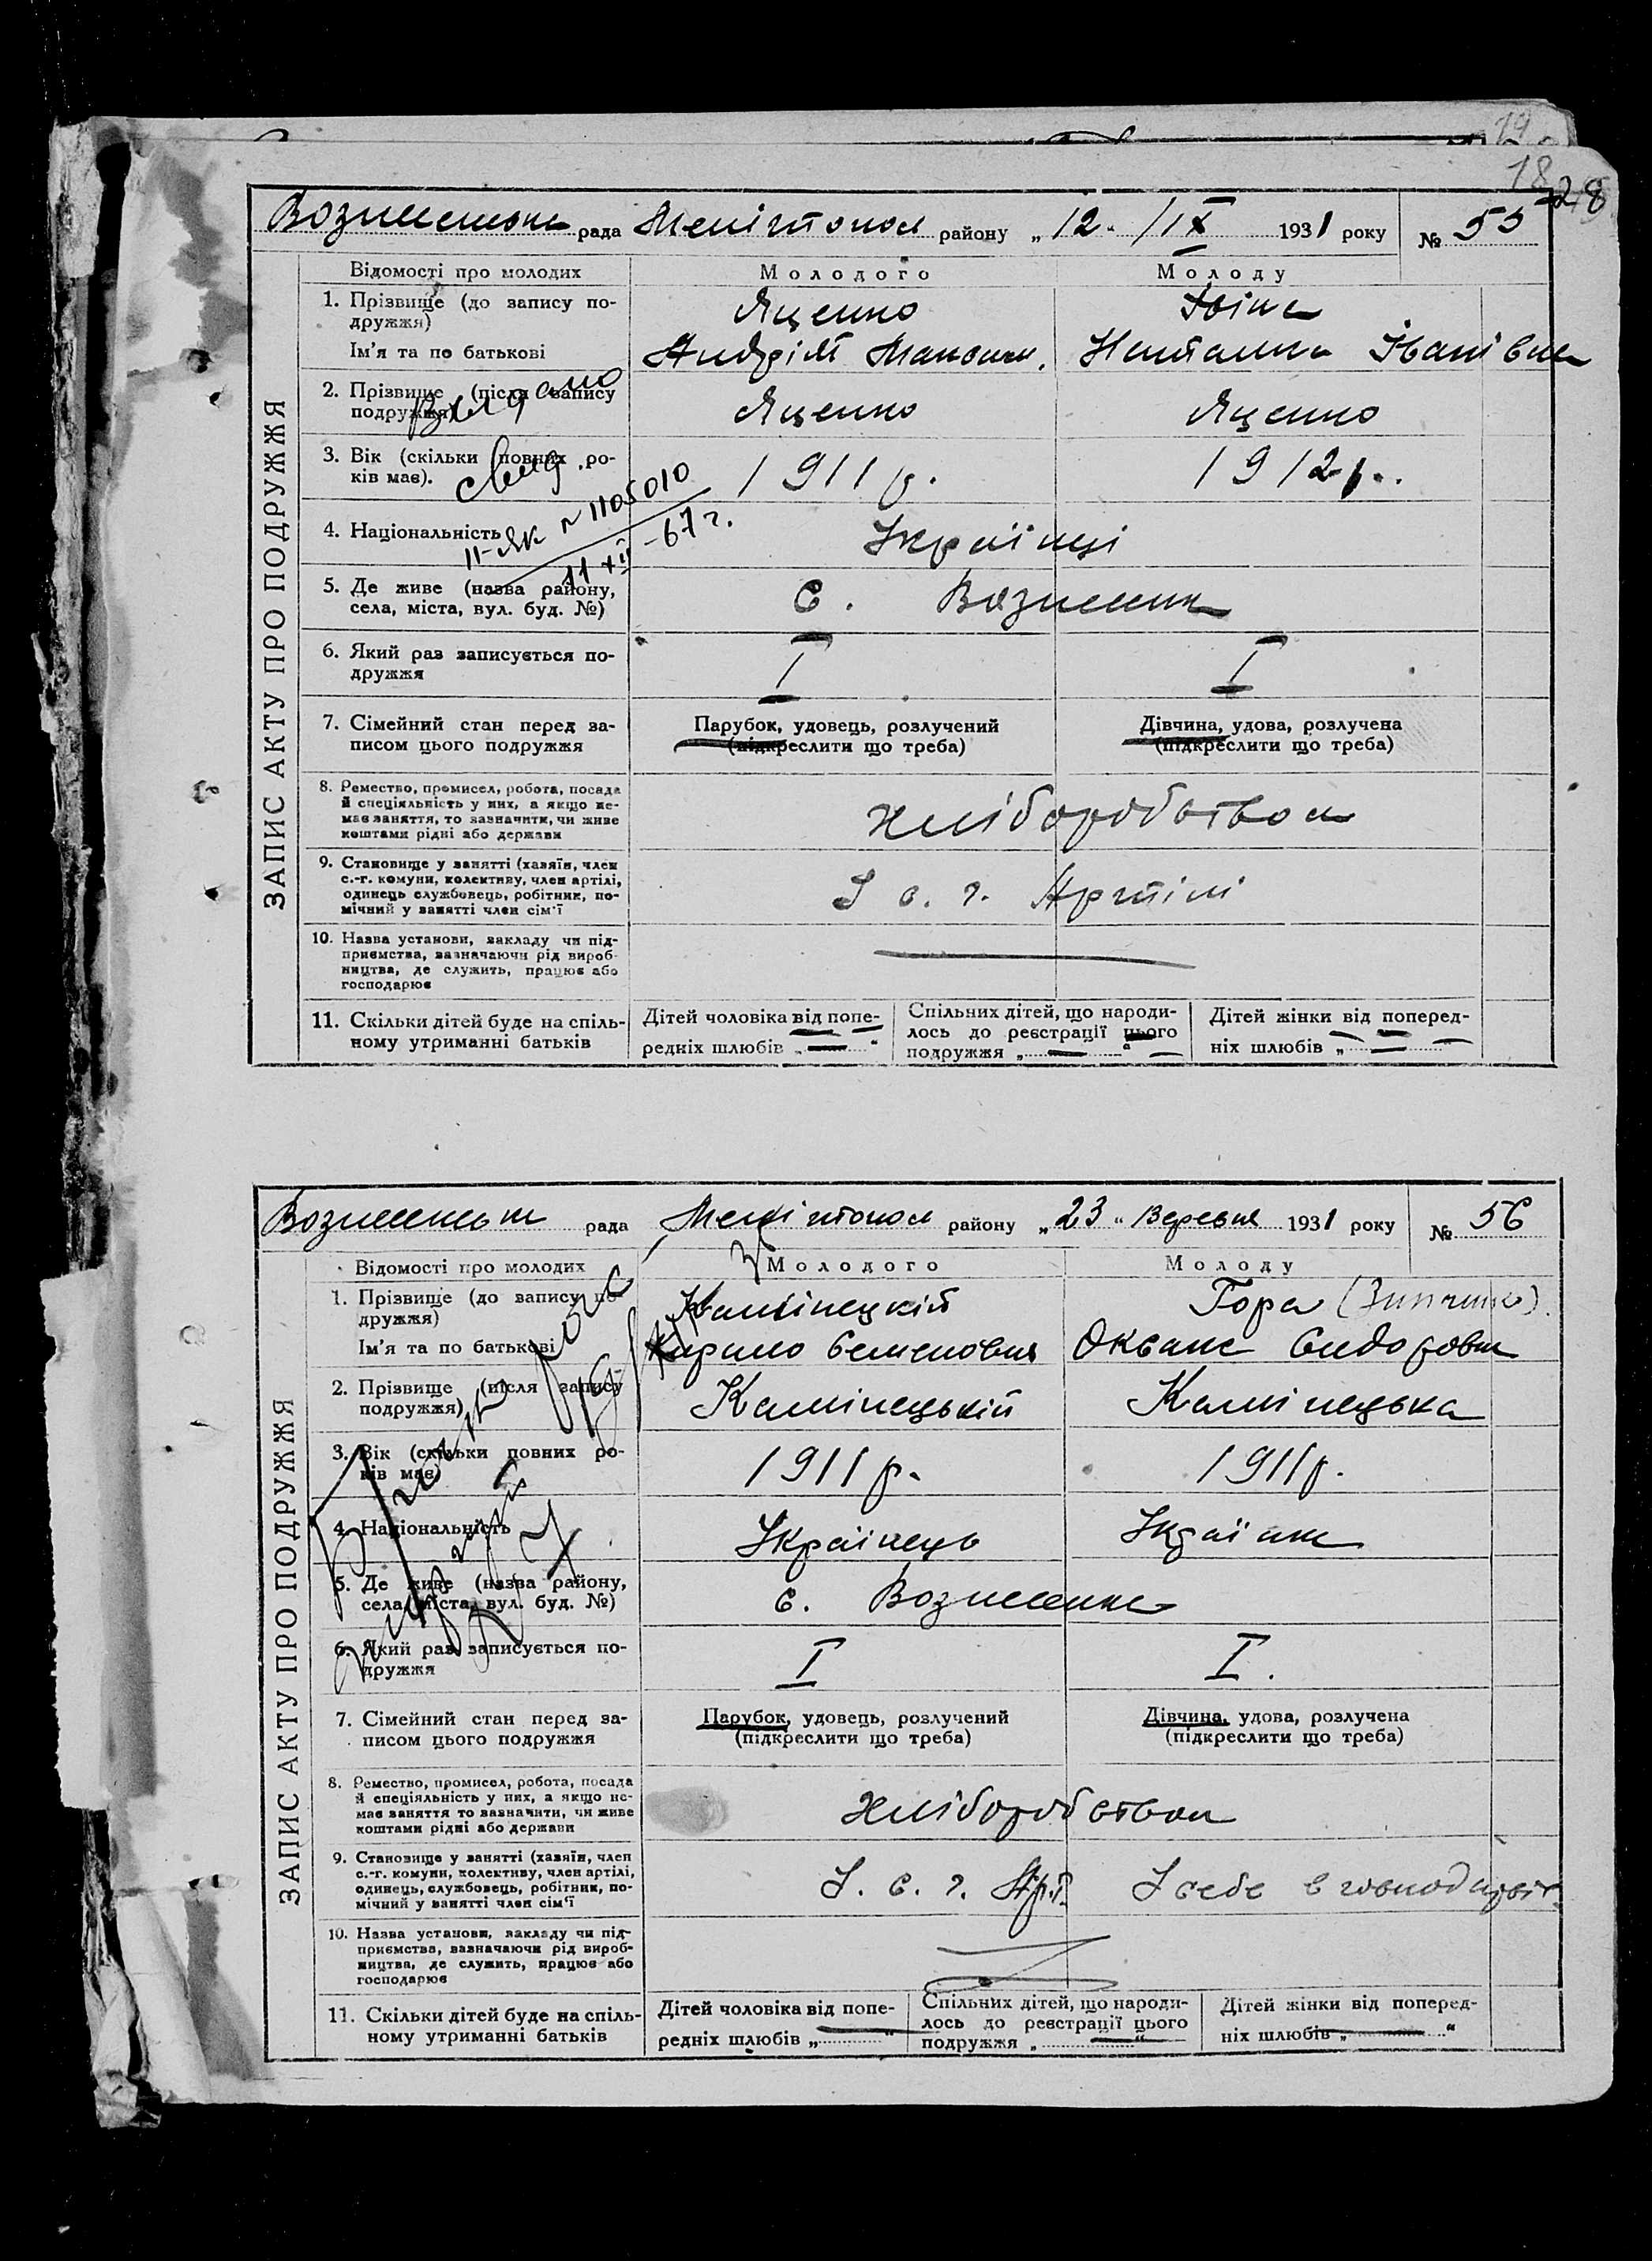 19
18
28
рада Мелітопол району „12“ /IX 1931 року № 55
ЗАПИС АКТУ ПРО ПОДРУЖЖЯ
Відомості про молодих Молодого Молоду
1. Прізвище (до запису по- Яценко
дружжя)
Ім'я та по батькові Андрій Іванівна
2. Прізвище (після запису Яценко Яценко
подружжя)
Выдано
свид.
II-ЯК № 1105010
11 XII -67 г.
3. Вік (скільки повних ро- 1911 р. 1912 р.
ків має).
4. Національність Українці
5. Де живе (назва району, с. Вознесенка
села, міста, вул. буд. №)
6. Який раз записується по- I I
дружжя
7. Сімейний стан перед за- Парубок, удовець, розлучений Дівчина, удова, розлучена
писом цього подружжя (підкреслити що треба) (підкреслити що треба)
8. Ремество, промисел, робота, посада хліборобством
й спеціяльність у них, а якщо не-
має заняття, то зазначити, чи живе
коштами рідні або держави
9. Становище у занятті (хазяїн, член У с. г. Артілі
с.-г. комуни, колективу, член артілі,
одинець службовець, робітник, по-
мічний у занятті член сім'ї
10. Назва установи, закладу чи під-
приємства, зазначаючи рід вироб-
ництва, де служить, працює або
господарює
11. Скільки дітей буде на спіль- Дітей чоловіка від попе- Спільних дітей, що народи- Дітей жінки від поперед-
ному утриманні батьків редніх шлюбів „—“ лось до реєстрації цього ніх шлюбів „—“
подружжя „—“
рада Мелітопол району „23“ Вересня 1931 року № 56
ЗАПИС АКТУ ПРО ПОДРУЖЖЯ
Відомості про молодих Молодого Молоду
1. Прізвище (до запису по- Камінецкій Гора
дружжя)
Ім'я та по батькові Кирило Семенович Оксана Сидоровна
2. Прізвище (після запису Камінецький Камінецька
подружжя)
3. Вік (скільки повних ро- 1911 р. 1911 р.
ків має)
4. Національність Українець Українка
5. Де живе (назва району, с. Вознесенка
села, міста, вул. буд. №)
6. Який раз записується по- I I.
дружжя
7. Сімейний стан перед за- Парубок, удовець, розлучений Дівчина, удова, розлучена
писом цього подружжя (підкреслити що треба) (підкреслити що треба)
8. Ремество, промисел, робота, посада хліборобством
й спеціяльність у них, а якщо не-
має заняття то зазначити, чи живе
коштами рідні або держави
9. Становище у занятті (хазяїн, член У. с. г. Арт. У себе в господарстві
с.-г. комуни, колективу, член артілі,
одинець, службовець, робітник, по-
мічний у занятті член сім'ї
10. Назва установи, закладу чи під-
приємства, зазначаючи рід вироб-
ництва, де служить, працює або
господарює
11. Скільки дітей буде на спіль- Дітей чоловіка від попе- Спільних дітей, що народи- Дітей жінки від поперед-
ному утриманні батьків редніх шлюбів „ “ лось до реєстрації цього ніх шлюбів „ “
подружжя „ “